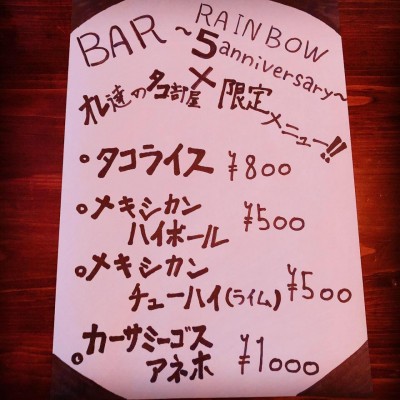 BAR RAINBOW
～5 anniversary～
オレ達のタコ部屋×限定
メニュー!!
タコライス ¥800
メキシカン
ハイボール ¥500
メキシカン
チューハイ(ライム) ¥500
カーサミーゴス
アネホ ¥1000